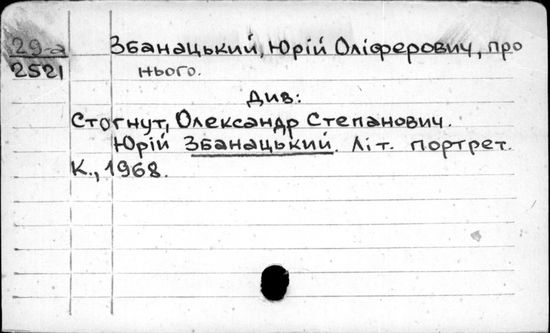 29-а
2521
Збанацький, Юрій Оліферович, про
нього.
Див:
Стогнут, Олександр Степанович.
Юрій Збанацький. Літ. портрет.
К., 1968.